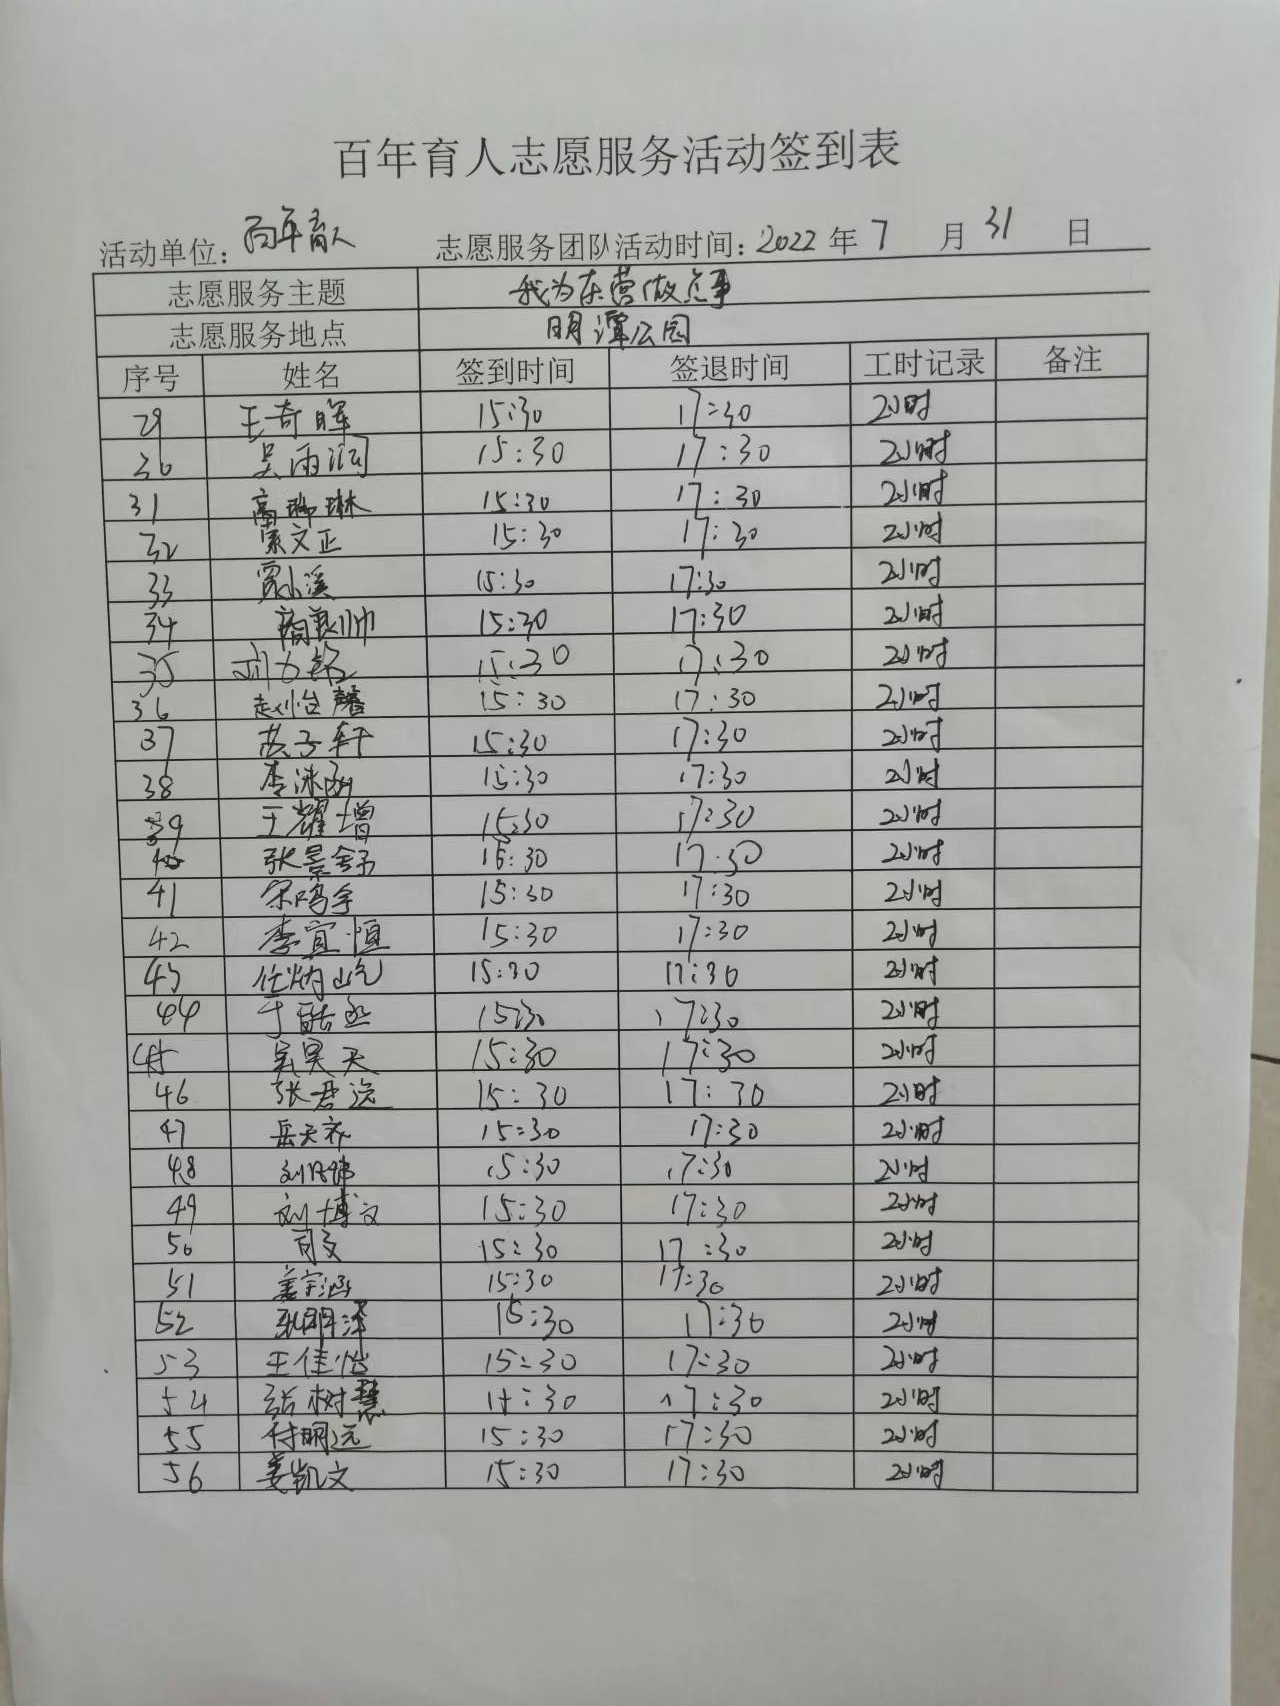 百年育人志愿服务活动签到表
活动单位：百年育人 志愿服务团队活动时间：2022 年 7 月 31 日
志愿服务主题 我为东营做点事
志愿服务地点 明潭公园
序号 姓名 签到时间 签退时间 工时记录 备注
29 王奇晖 15:30 17:30 2小时
30 吴雨润 15:30 17:30 2小时
31 高琳 15:30 17:30 2小时
32 索文正 15:30 17:30 2小时
33 贾小溪 15:30 17:30 2小时
34 15:30 17:30 2小时
35 刘 15:30 17:30 2小时
36 赵怡馨 15:30 17:30 2小时
37 苏子轩 15:30 17:30 2小时
38 李沐函 15:30 17:30 2小时
39 王耀增 15:30 17:30 2小时
40 张景舒 15:30 17:30 2小时
41 宋鸣宇 15:30 17:30 2小时
42 李宜恒 15:30 17:30 2小时
43 任炳屹 15:30 17:30 2小时
44 于皓丞 15:30 17:30 2小时
45 吴昊天 15:30 17:30 2小时
46 张君 15:30 17:30 2小时
47 岳天齐 15:30 17:30 2小时
48 刘 15:30 17:30 2小时
49 刘博文 15:30 17:30 2小时
50 15:30 17:30 2小时
51 姜宇涵 15:30 17:30 2小时
52 明泽 15:30 17:30 2小时
53 王佳怡 15:30 17:30 2小时
54 张树慧 15:30 17:30 2小时
55 付明远 15:30 17:30 2小时
56 姜凯文 15:30 17:30 2小时